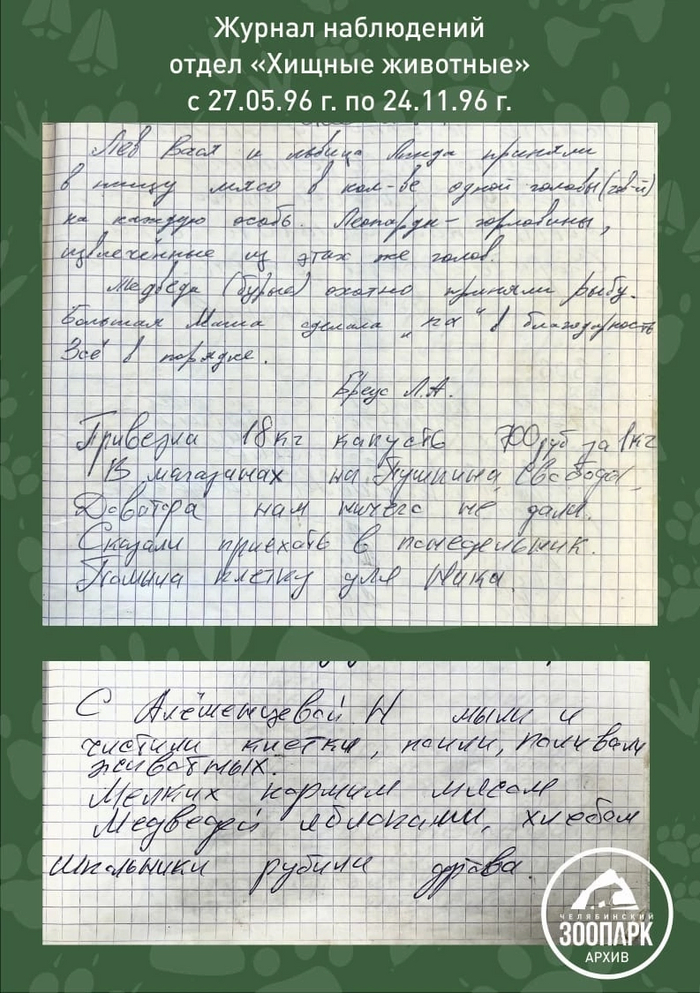 Журнал наблюдений
отдел «Хищные животные»
с 27.05.96 г. по 24.11.96 г.
Лев Вася и львица Линда приняли
в пищу мясо в кол-ве одной головы (гов-й)
на каждую особь. Леопарды - горловины,
извлечённые из этих же голов.
Медведа (бурые) охотно приняли рыбу.
Большая Маша сделала „па" в благодарность
Всё в порядке.
Бреус Л.А.
Привезли 18кг капусты 700 руб за 1кг
В магазинах на Пушкина, Свободы,
Доватора нам ничего не дали.
Сказали приехать в понедельник.
Помыла клетку для Ника.
С Алёшенцевой Н мыли и
чистили клетки, поили, поливали
животных.
Мелких кормим мясом
Медведей яблоками, хлебом
Школьники рубили дрова.
ЧЕЛЯБИНСКИЙ
ЗООПАРК
АРХИВ